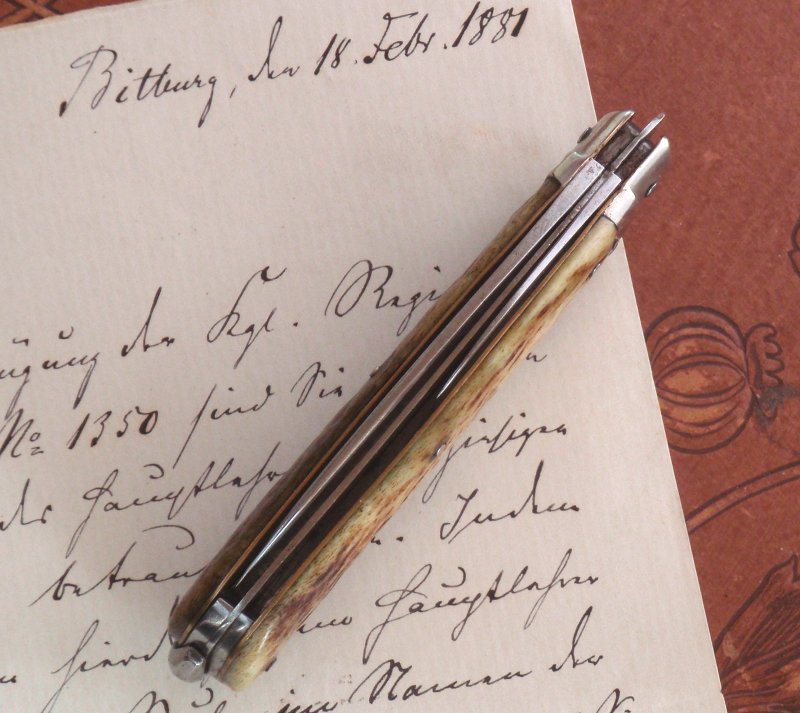 Bitburg, den 18. Febr. 1881
ügung der Kgl. Regi
No 1350 sind Sie
des Hauptlehr hiesigen
betrau Indem
hierd Hauptlehrer
im Namen der